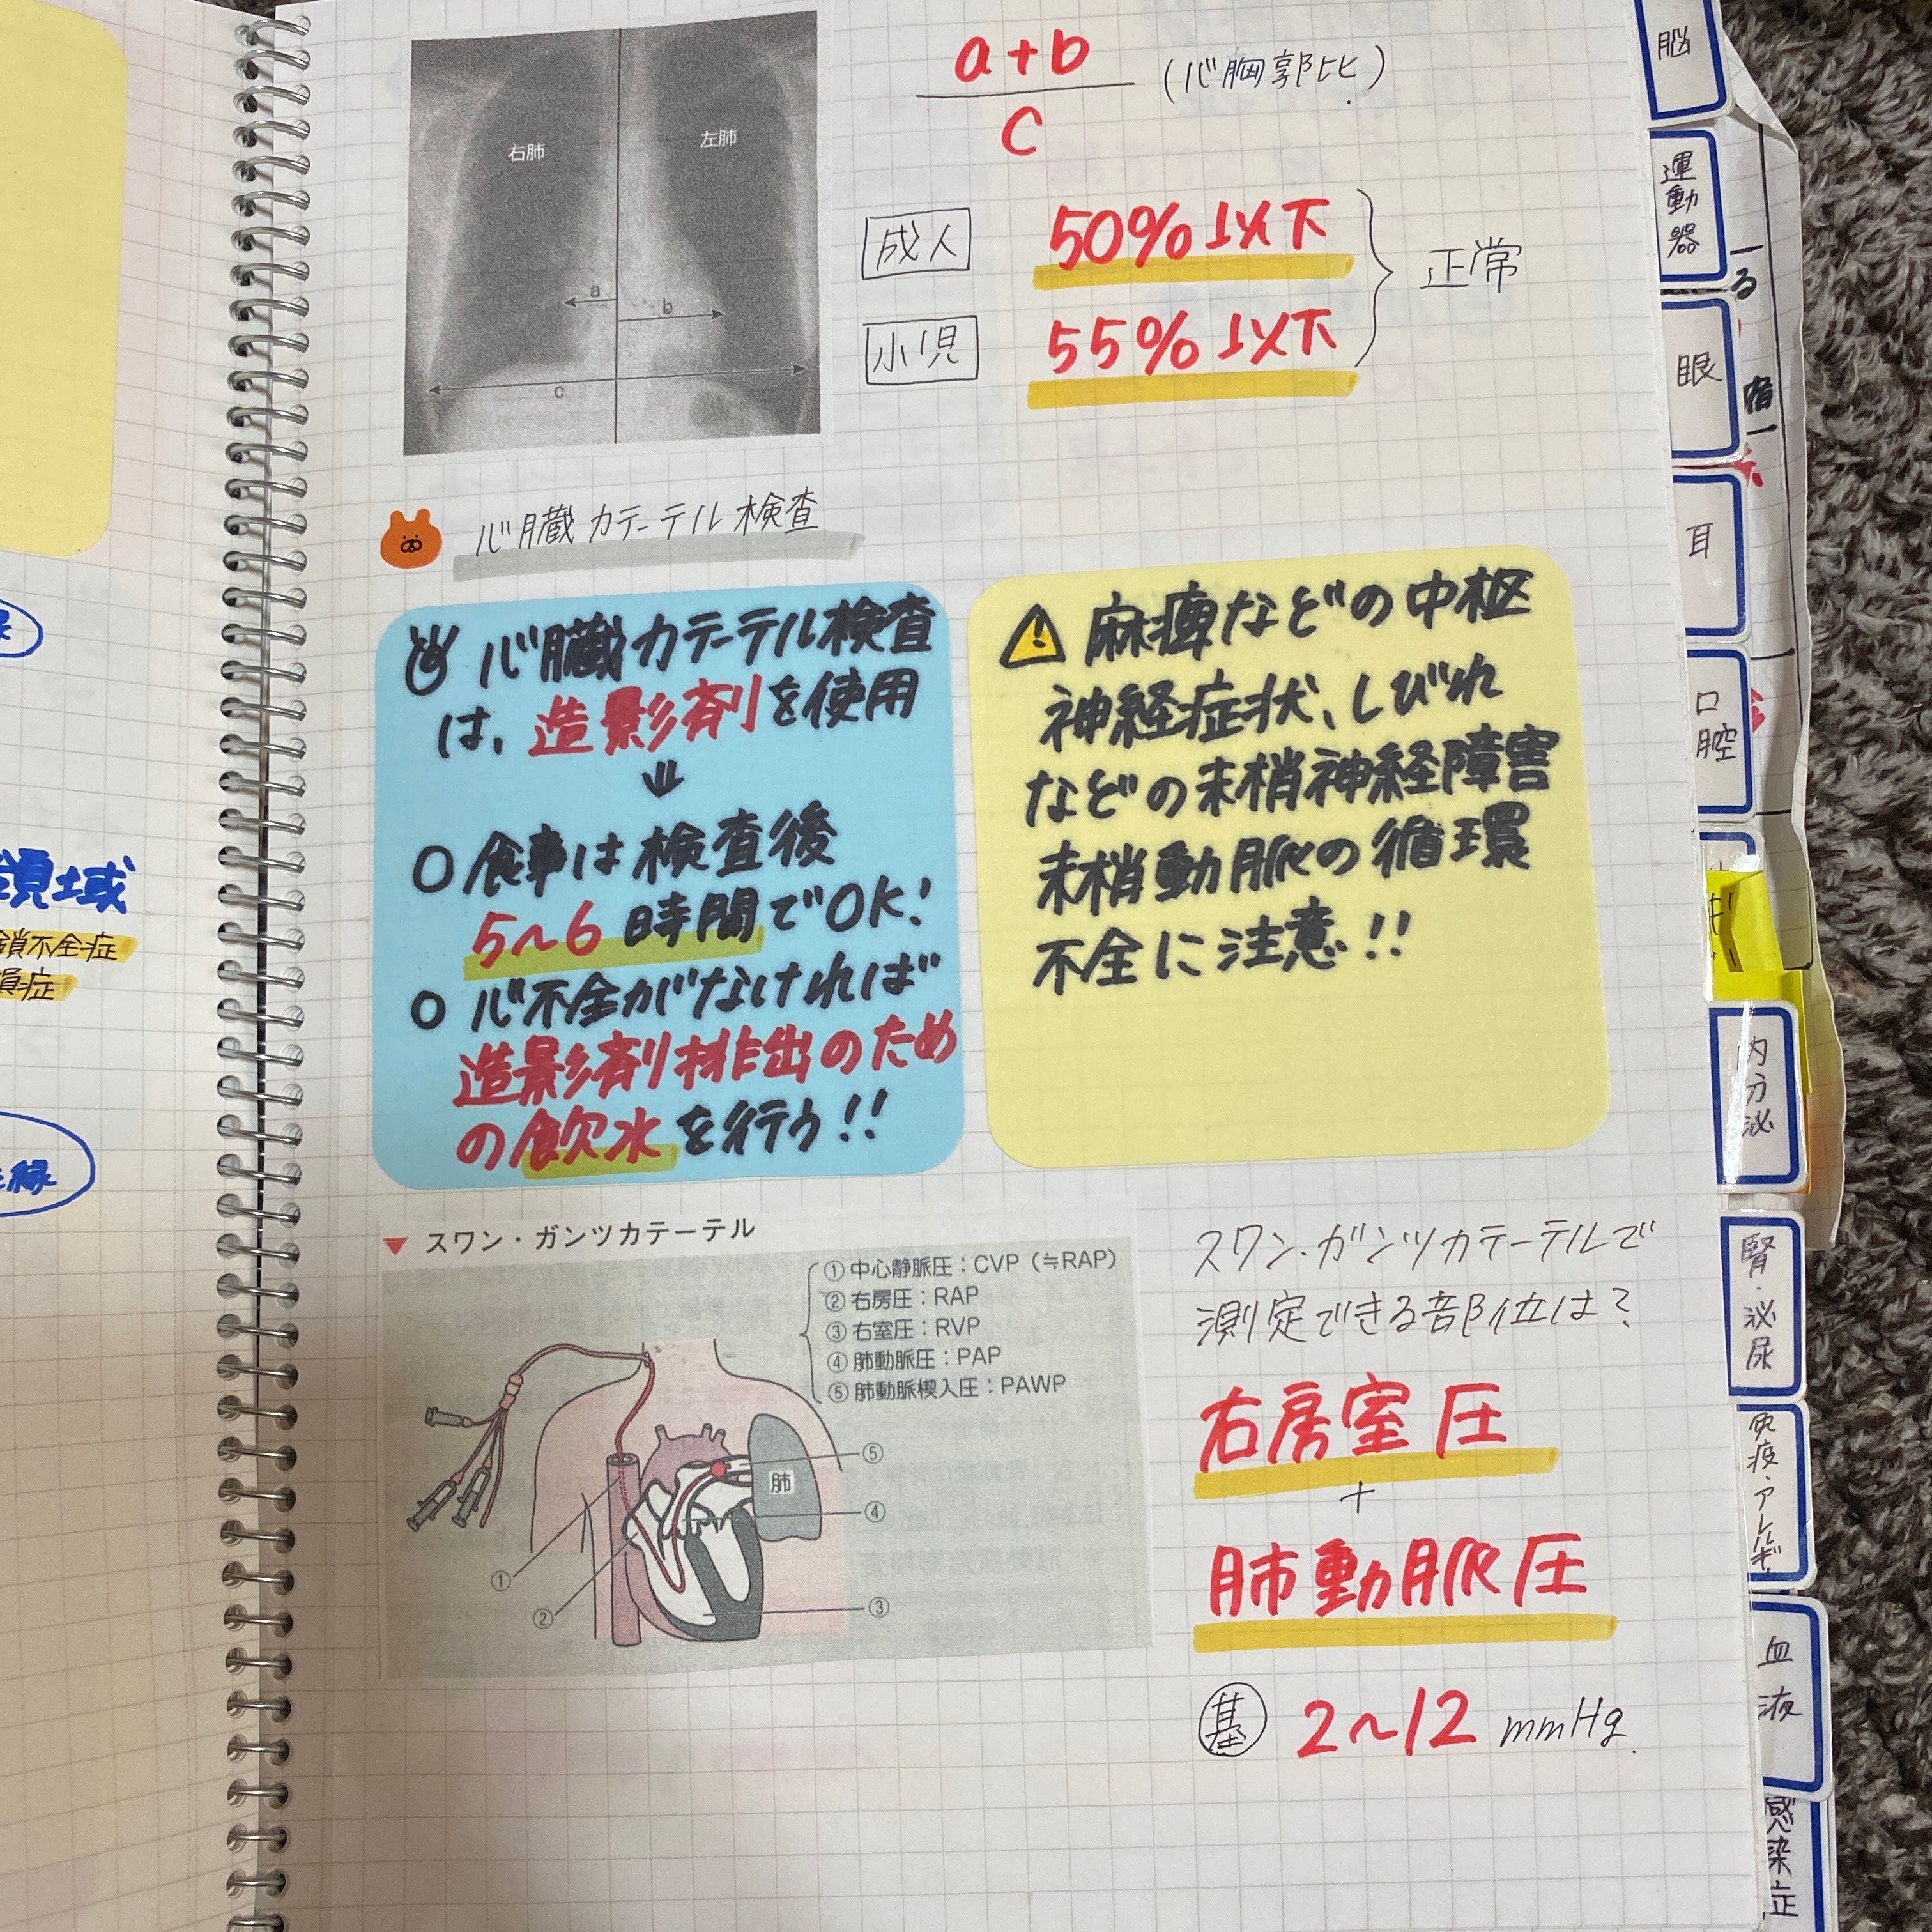 a+b
c
(心胸郭比)
右肺
左肺
a
b
c
成人 50%以下
小児 55%以下
正常
心臓カテーテル検査
心臓カテーテル検査
は、造影剤を使用
↓
○ 食事は検査後
5~6時間でOK!
○ 心不全がなければ
造影剤排出のため
の飲水を行う!!
麻痺などの中枢
神経症状、しびれ
などの末梢神経障害
末梢動脈の循環
不全に注意!!
▼ スワン・ガンツカテーテル
①中心静脈圧：CVP（≒RAP）
②右房圧：RAP
③右室圧：RVP
④肺動脈圧：PAP
⑤肺動脈楔入圧：PAWP
肺
⑤
④
①
②
③
スワン・ガンツカテーテルで
測定できる部位は?
右房室圧
+
肺動脈圧
基 2~12 mmHg
領域
鎖不全症
損症
縁
脳
運動器
眼
耳
口腔
内分泌
腎・泌尿
免疫・アレルギー
血液
感染症